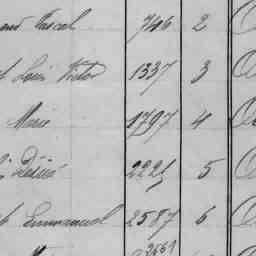 Pascal 746 2
Louis Victor 1337 3
Marie 1797 4
Désiré 2221 5
Emmanuel 2587 6
2661